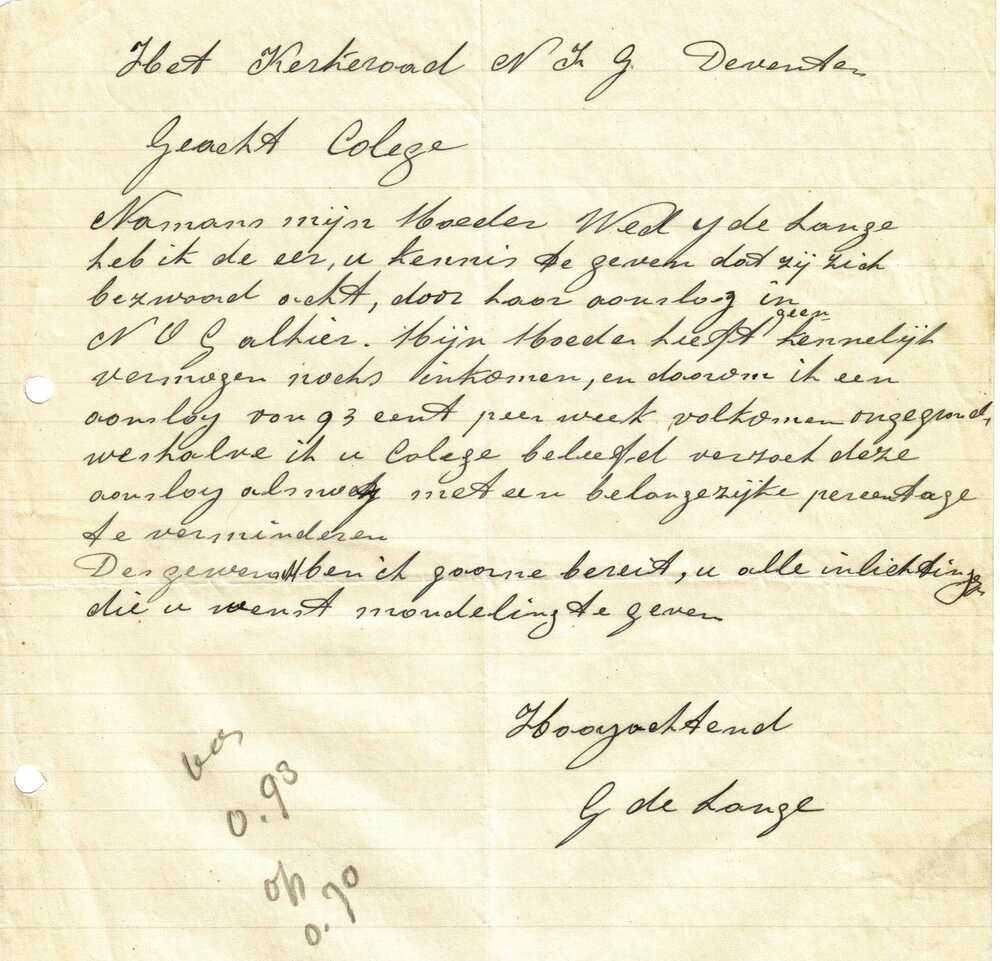 Het Kerkeraad N I G. Deventer
Geacht Colege
Namans mijn Moeder Wed Y de Lange
heb ik de eer, u kennis te geven dat zij zich
bezwaard acht, door haar aanslag in
geen
N I G alhier. Mijn Moeder heeft kennelijk
vermogen nochs inkomen, en daarom ik een
aanslag van 93 cent peer week volkomen ongegrond,
weshalve ik u Colege beleefd verzoek deze
aanslag alsnog met een belangezijke percentage
te verminderen
Desgewenst ben ik gaarne bereit, u alle inlichtingen
die u wenst mondeling te geven
Hoogachtend
G de Lange
van
0.93
op
0.70